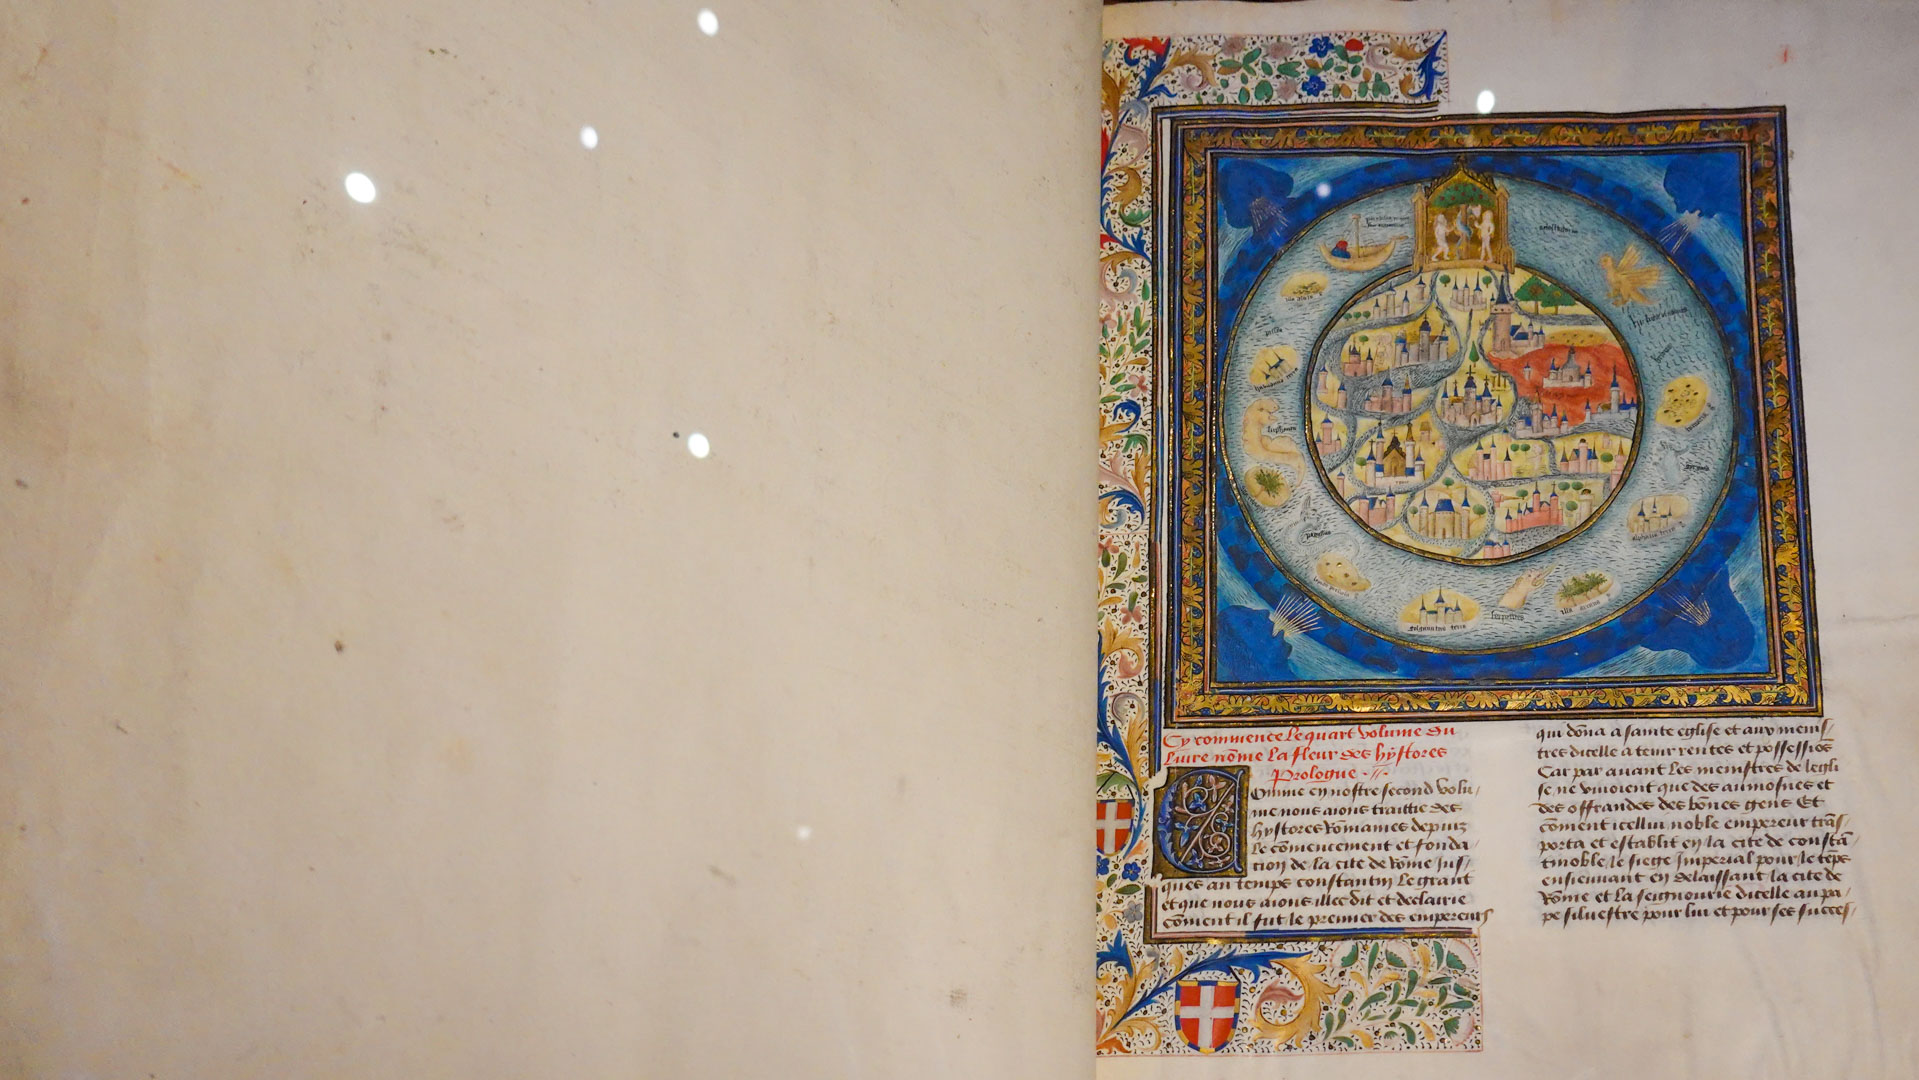 Cy commence le quart volume du
livre nōme la fleur des hystores
Prologue
Comme en nostre second volu-
me nous avons traittie des
hystores Rommaines depuis
le cōmencement et fonda-
tion de la cite de Rōme jus-
ques au temps constantin le grant
et que nous avons illec dit et declairie
cōment il fut le premier des empereurs
qui dōna a sainte eglise et aux menis-
tres dicelle a tenir rentes et possessiōs
Car par avant les menistres de legli
se ne vivoient que des aumosnes et
des offrandes des bōnes gens Et
cōment icellui noble empereur trās-
porta et establit en la cite de constā-
tinoble le siege Imperial pour le tēps
ensieuvant en delaissant la cite de
Rōme et la seignourie dicelle au pa-
pe silvestre pour lui et pour ses succes-